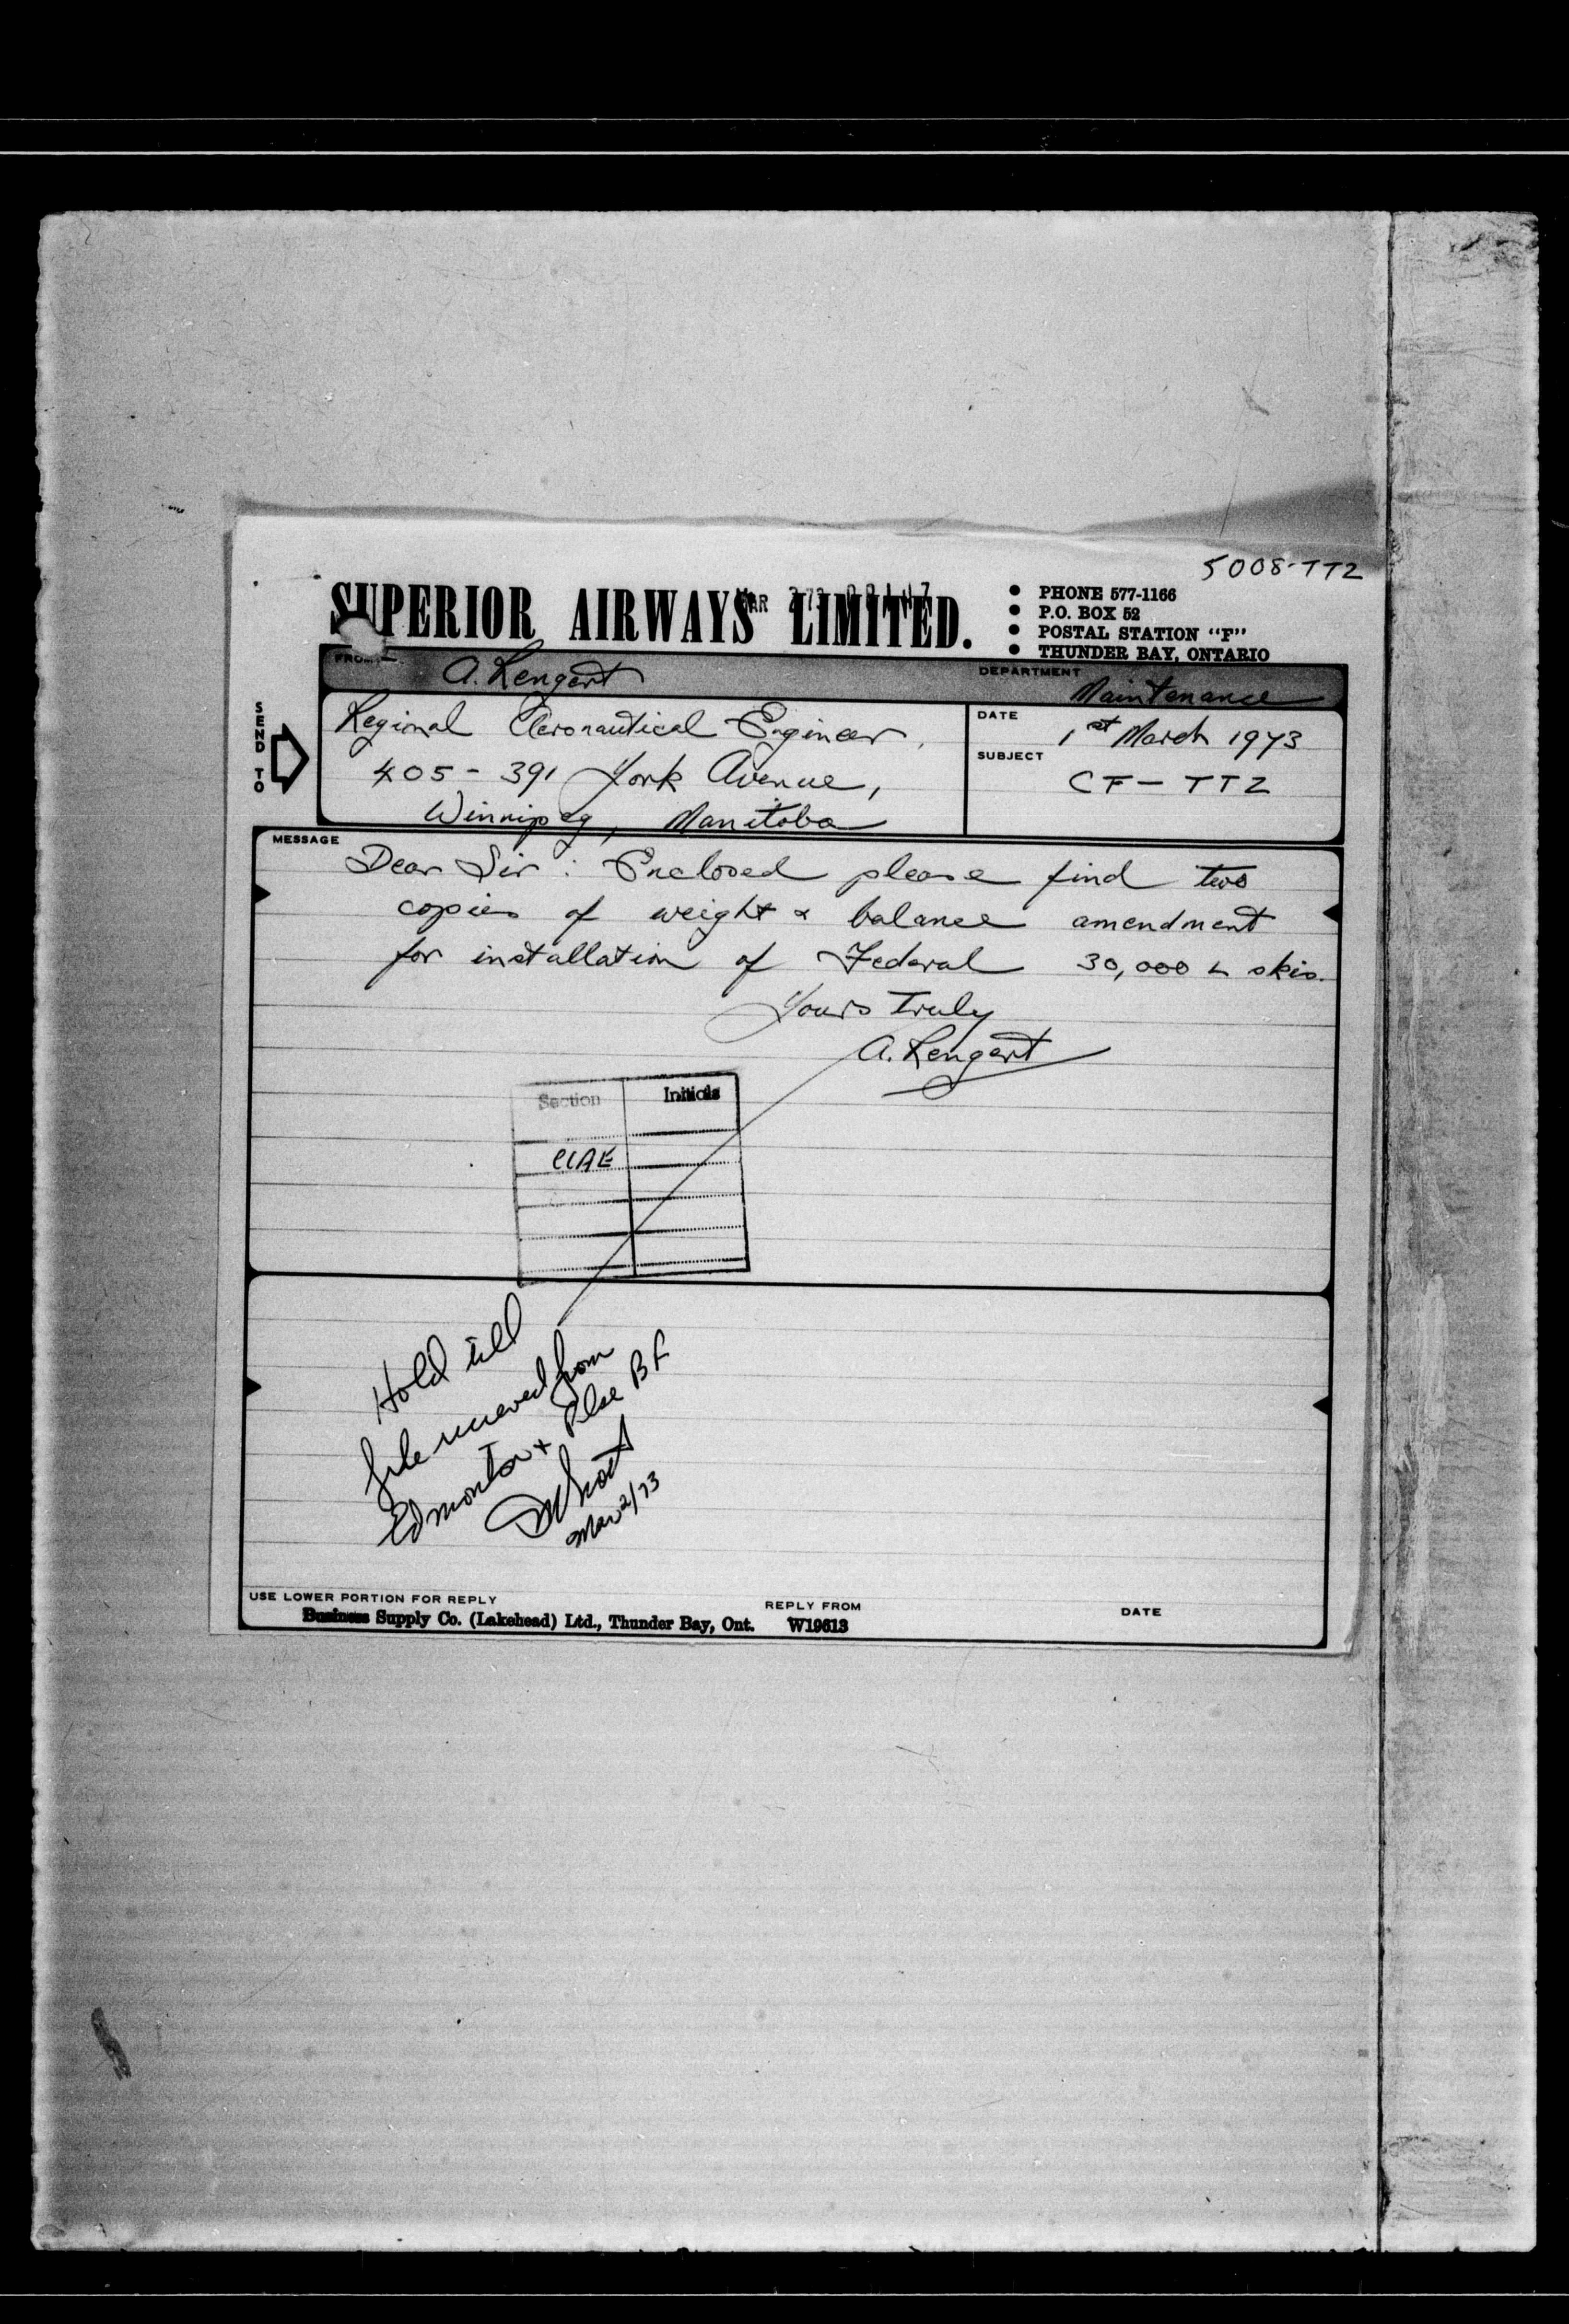 5008-TTZ
SUPERIOR AIRWAYS LIMITED.
MAR 2 73
• PHONE 577-1166
• P.O. BOX 52
• POSTAL STATION "F"
• THUNDER BAY, ONTARIO
FROM A. Rengert
DEPARTMENT Maintenance
SEND TO
Regional Aeronautical Engineer,
405 - 391 York Avenue,
Winnipeg, Manitoba
DATE 1st March 1973
SUBJECT CF-TTZ
MESSAGE
Dear Sir: Enclosed please find two
copies of weight & balance amendment
for installation of Federal 30,000 skis.
Yours Truly
A. Rengert
Section Initials
Hold till
file recieved from
Edmonton + Plse BF
Mar 2/73
USE LOWER PORTION FOR REPLY
REPLY FROM
DATE
Business Supply Co. (Lakehead) Ltd., Thunder Bay, Ont. W19613